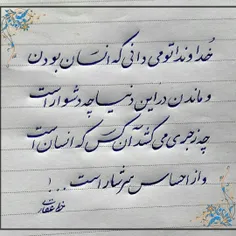 خداوندا تو می دانی که انسان بودن
و ماندن در این دنیا چه دشوار است
چه زجری می کشد آن کس که انسان است
و از احساس سرشار است ...!
خط عقدایی